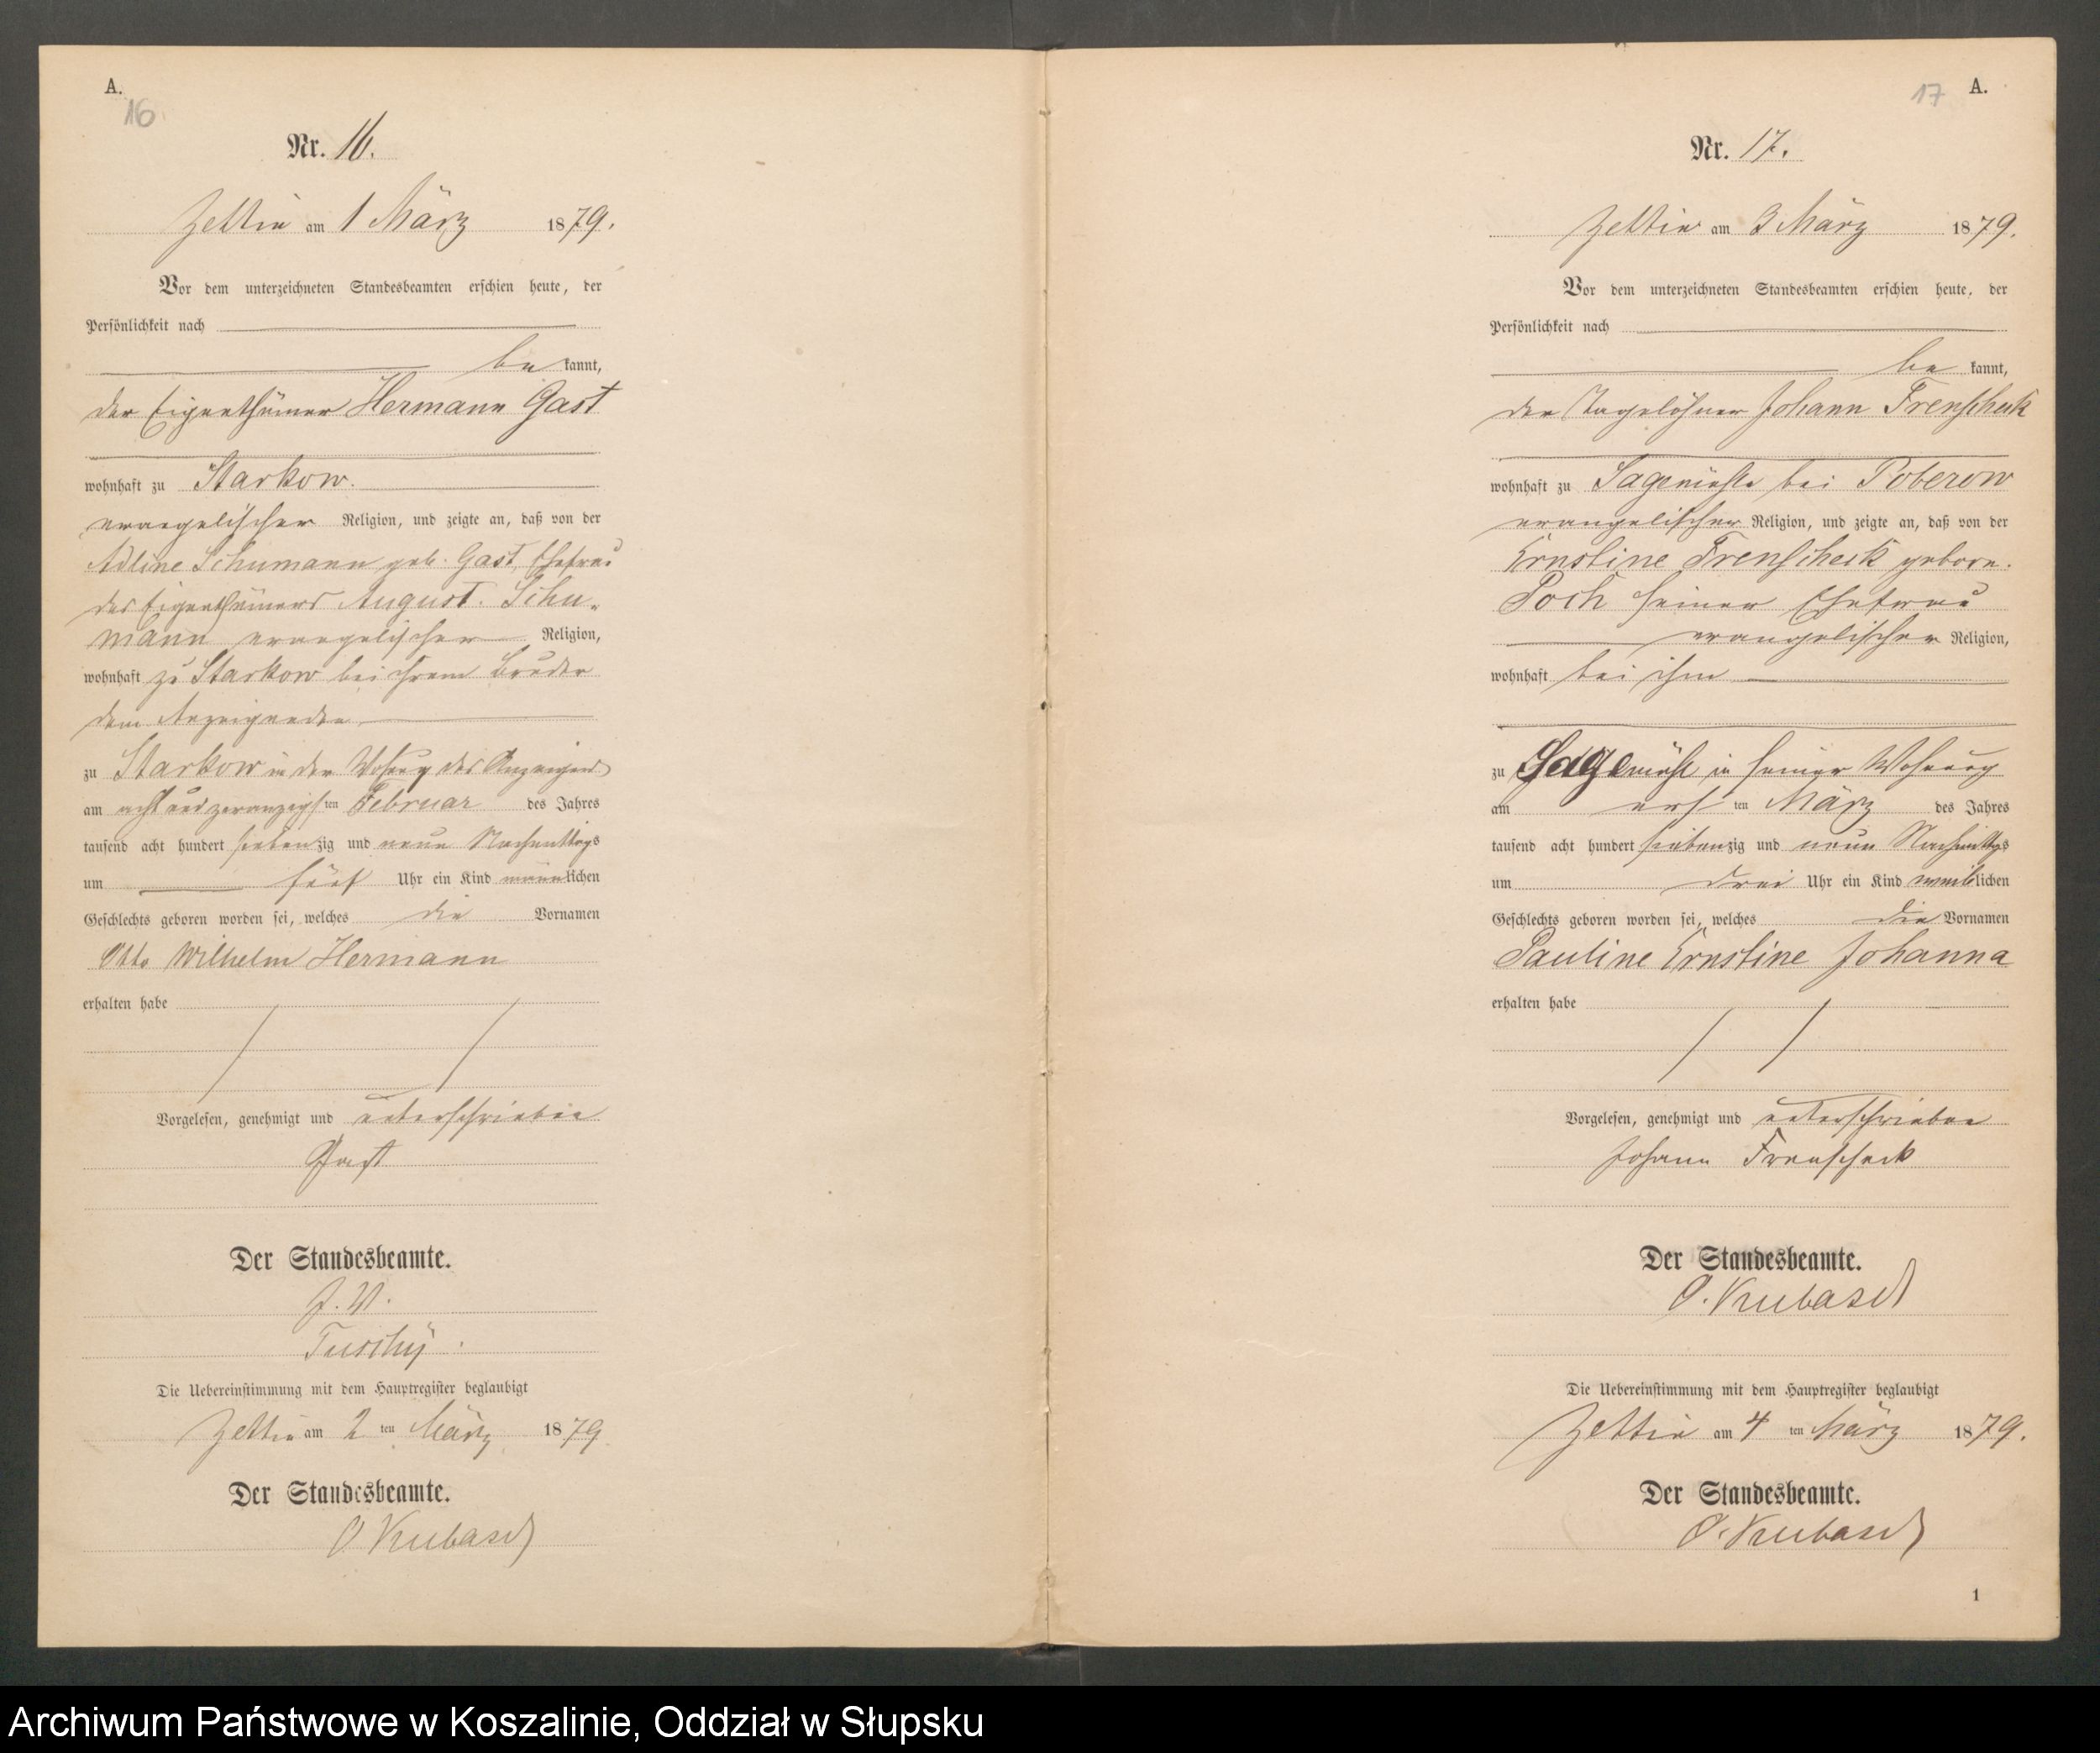 A.
16
Nr. 16.
Zettin am 1 März 1879.
Vor dem unterzeichneten Standesbeamten erschien heute, der
Persönlichkeit nach
be kannt,
der Eigenthümer Hermann Gast
wohnhaft zu Starkow.
evangelischer Religion, und zeigte an, daß von der
Adline Schumann geb. Gast, Ehefrau
des Eigenthümers August Schu-
mann evangelischer Religion,
wohnhaft zu Starkow bei ihrem Bruder
dem Anzeigenden
zu Starkow in der Wohung des Anzeigend
am acht und zwanzigsten Februar des Jahres
tausend acht hundert siebenzig und neun Nachmittags
um fünf Uhr ein Kind männlichen
Geschlechts geboren worden sei, welches die Vornamen
Otto Wilhelm Hermann
erhalten habe
Vorgelesen, genehmigt und unterschrieben
Gast
Der Standesbeamte.
J. V.
Tuschy.
Die Uebereinstimmung mit dem Hauptregister beglaubigt
Zettin am 2 ten März 1879
Der Standesbeamte.
O. Krubasch
17
A.
Nr. 17.
Zettin am 3 März 1879.
Vor dem unterzeichneten Standesbeamten erschien heute, der
Persönlichkeit nach
be kannt,
der Tagelöhner Johann Frenscheck
wohnhaft zu Sagemühle bei Poberow
evangelischer Religion, und zeigte an, daß von der
Ernstine Frenscheck geborn.
Poch seiner Ehefrau
evangelischer Religion,
wohnhaft bei ihm
zu Sagemühl in seiner Wohnung
am ersten März des Jahres
tausend acht hundert siebenzig und neun Nachmittgs
um drei Uhr ein Kind weiblichen
Geschlechts geboren worden sei, welches die Vornamen
Pauline Ernstine Johanna
erhalten habe
Vorgelesen, genehmigt und unterschrieben
Johann Frenscheck
Der Standesbeamte.
O. Krubasch
Die Uebereinstimmung mit dem Hauptregister beglaubigt
Zettin am 4 ten März 1879.
Der Standesbeamte.
O. Krubasch
1
Archiwum Państwowe w Koszalinie, Oddział w Słupsku